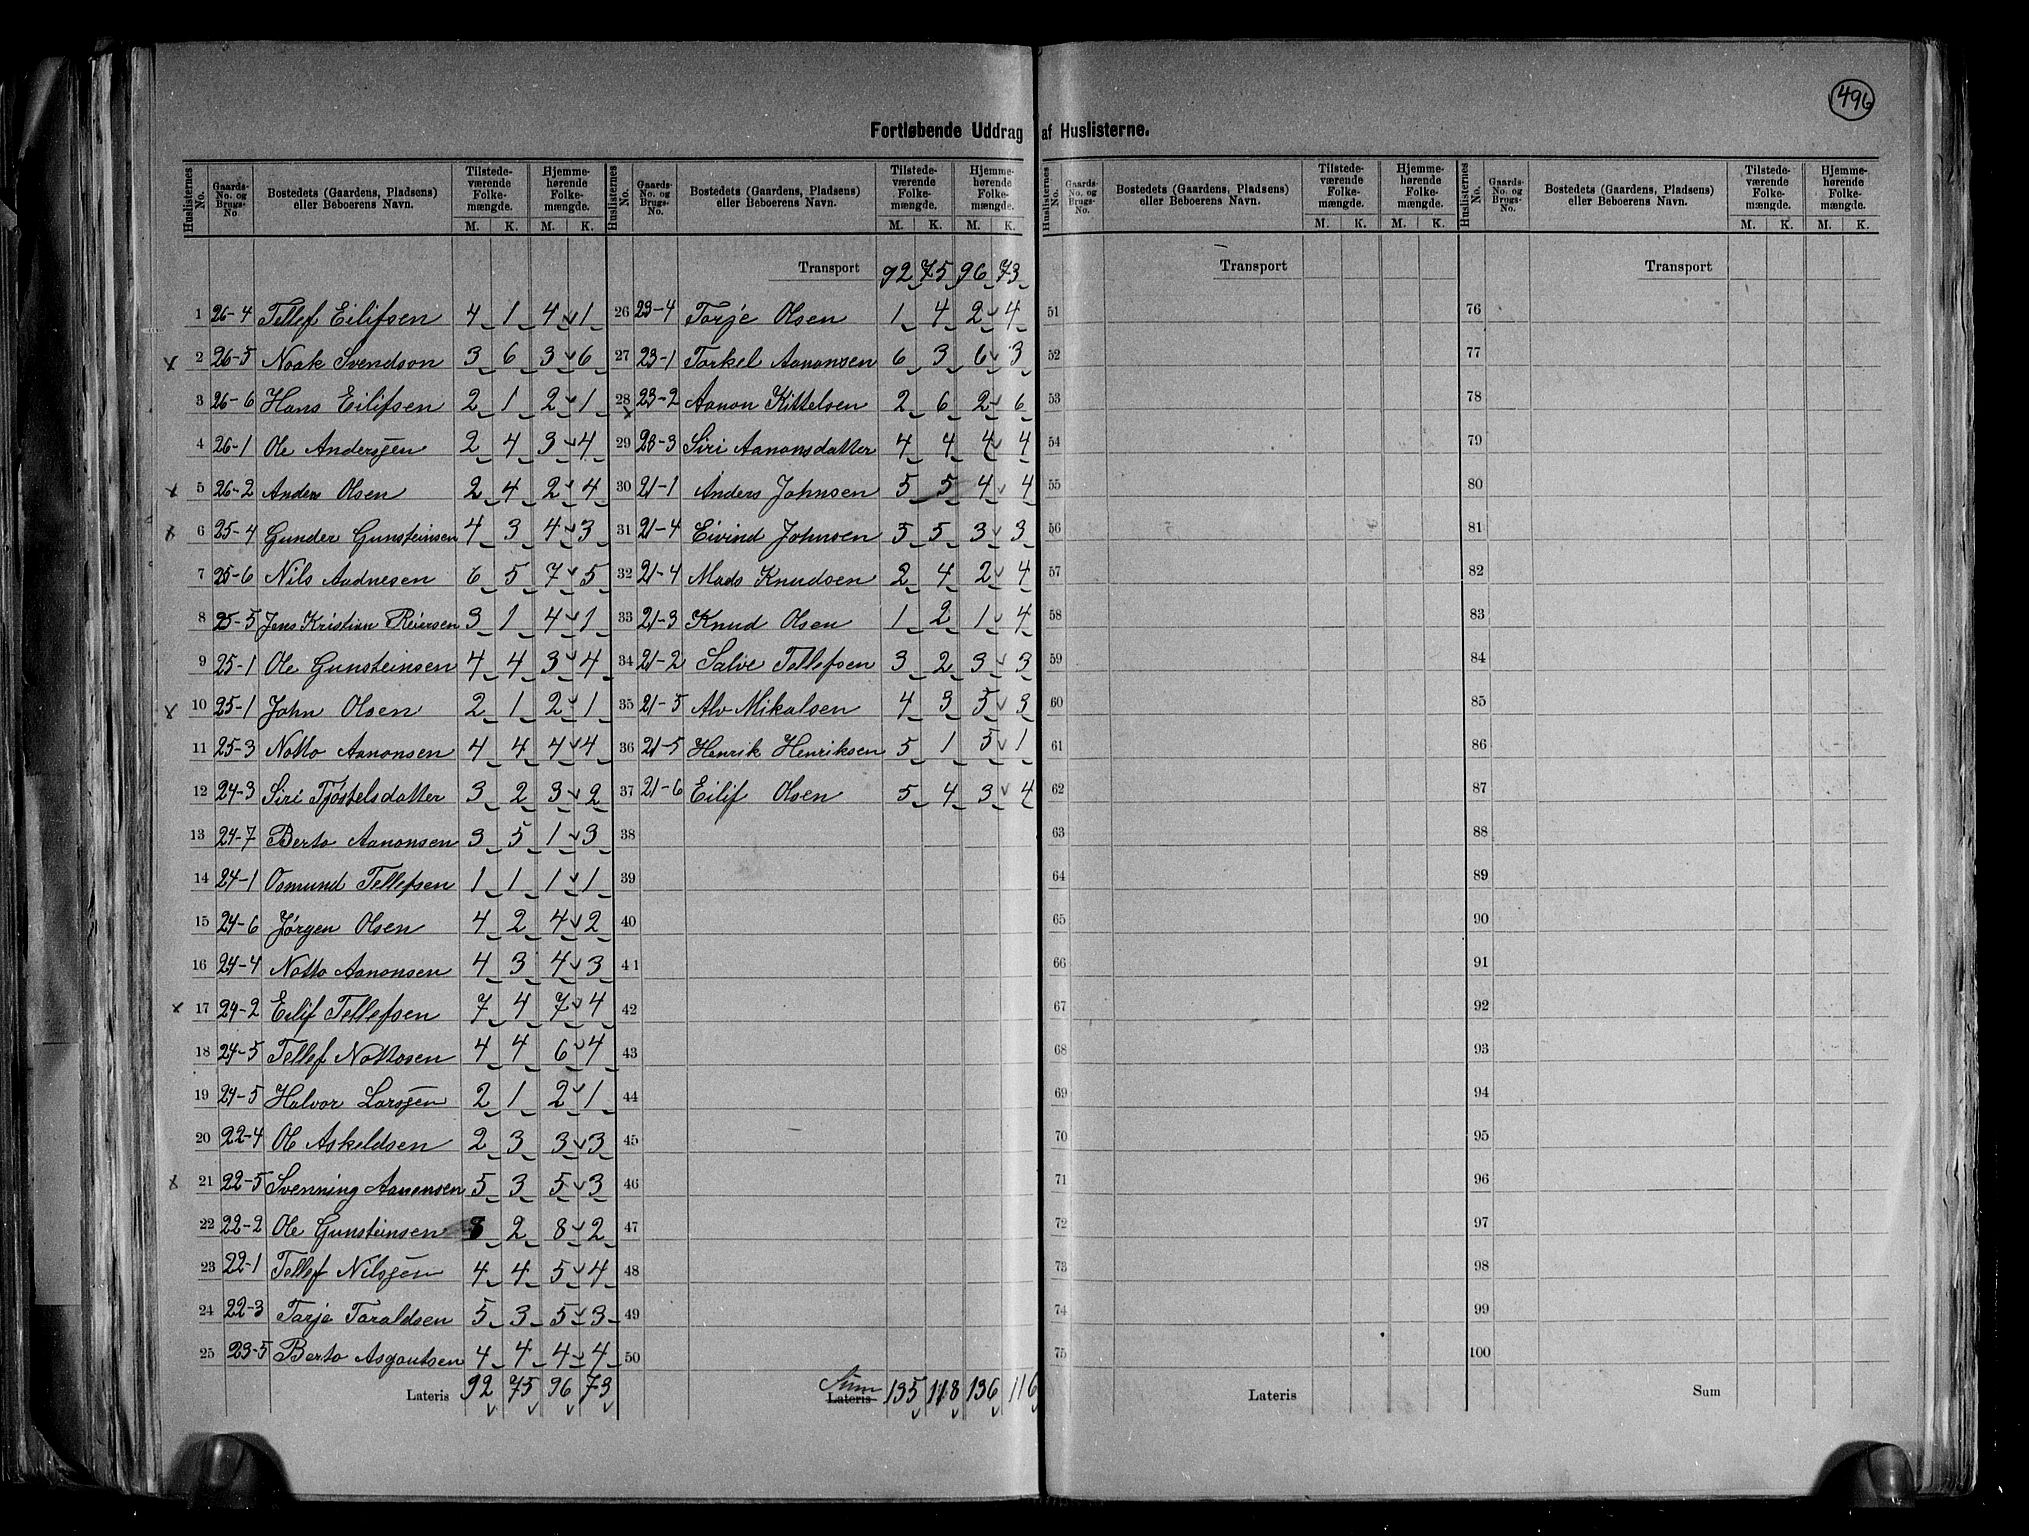 496
Fortløbende Uddrag af Huslisterne.
Huslisternes No. Gaards-No. og Brugs-No. Bostedets (Gaardens, Pladsens) eller Beboerens Navn. Tilstede-værende Folke-mængde. M. K. Hjemme-hørende Folke-mængde. M. K.
1 26-4 Tellef Eilifsen 4 1 4 1
x 2 26-5 Noak Svendson 3 6 3 6
3 26-6 Hans Eilifsen 2 1 2 1
4 26-1 Ole Andersen 2 4 3 4
x 5 26-2 Anders Olsen 2 4 2 4
x 6 25-4 Gunder Gunsteinsen 4 3 4 3
7 25-6 Nils Aadnesen 6 5 7 5
8 25-5 Jens Kristian Reiersen 3 1 4 1
9 25-1 Ole Gunsteinsen 4 4 3 4
x 10 25-1 John Olsen 2 1 2 1
11 25-3 Notto Aanonsen 4 4 4 4
12 24-3 Siri Tjøstelsdatter 3 2 3 2
13 24-7 Berto Aanonsen 3 5 1 3
14 24-1 Osmund Tellefsen 1 1 1 1
15 24-6 Jørgen Olsen 4 2 4 2
16 24-4 Notto Aanonsen 4 3 4 3
x 17 24-2 Eilif Tellefsen 7 4 7 4
18 24-5 Tellef Nottosen 4 4 6 4
19 24-5 Halvor Larssen 2 1 2 1
20 22-4 Ole Askeldsen 2 3 3 3
x 21 22-5 Svenning Aanonsen 5 3 5 3
22 22-2 Ole Gunsteinsen 8 2 8 2
23 22-1 Tellef Nilssen 4 4 5 4
24 22-3 Tarje Taraldsen 5 3 5 3
25 23-5 Berto Asgoutsen 4 4 4 4
Lateris 92 75 96 73
Huslisternes No. Gaards-No. og Brugs-No. Bostedets (Gaardens, Pladsens) eller Beboerens Navn. Tilstede-værende Folke-mængde. M. K. Hjemme-hørende Folke-mængde. M. K.
Transport 92 75 96 73
26 23-4 Torje Olsen 1 4 2 4
27 23-1 Torkel Aanonsen 6 3 6 3
x 28 23-2 Aanon Kittelsen 2 6 2 6
29 23-3 Siri Aanonsdatter 4 4 4 4
30 21-1 Anders Johnsen 5 5 4 4
31 21-4 Eivind Johnsen 5 5 3 3
32 21-4 Mads Knudsen 2 4 2 4
33 21-3 Knud Olsen 1 2 1 4
34 21-2 Salve Tellefsen 3 2 3 3
35 21-5 Alv Mikalsen 4 3 5 3
36 21-5 Henrik Henriksen 5 1 5 1
37 21-6 Eilif Olsen 5 4 3 4
38
39
40
41
42
43
44
45
46
47
48
49
50
Sum
Lateris 135 118 136 116
Huslisternes No. Gaards-No. og Brugs-No. Bostedets (Gaardens, Pladsens) eller Beboerens Navn. Tilstede-værende Folke-mængde. M. K. Hjemme-hørende Folke-mængde. M. K.
Transport
51
52
53
54
55
56
57
58
59
60
61
62
63
64
65
66
67
68
69
70
71
72
73
74
75
Lateris
Huslisternes No. Gaards-No. og Brugs-No. Bostedets (Gaardens, Pladsens) eller Beboerens Navn. Tilstede-værende Folke-mængde. M. K. Hjemme-hørende Folke-mængde. M. K.
Transport
76
77
78
79
80
81
82
83
84
85
86
87
88
89
90
91
92
93
94
95
96
97
98
99
100
Sum